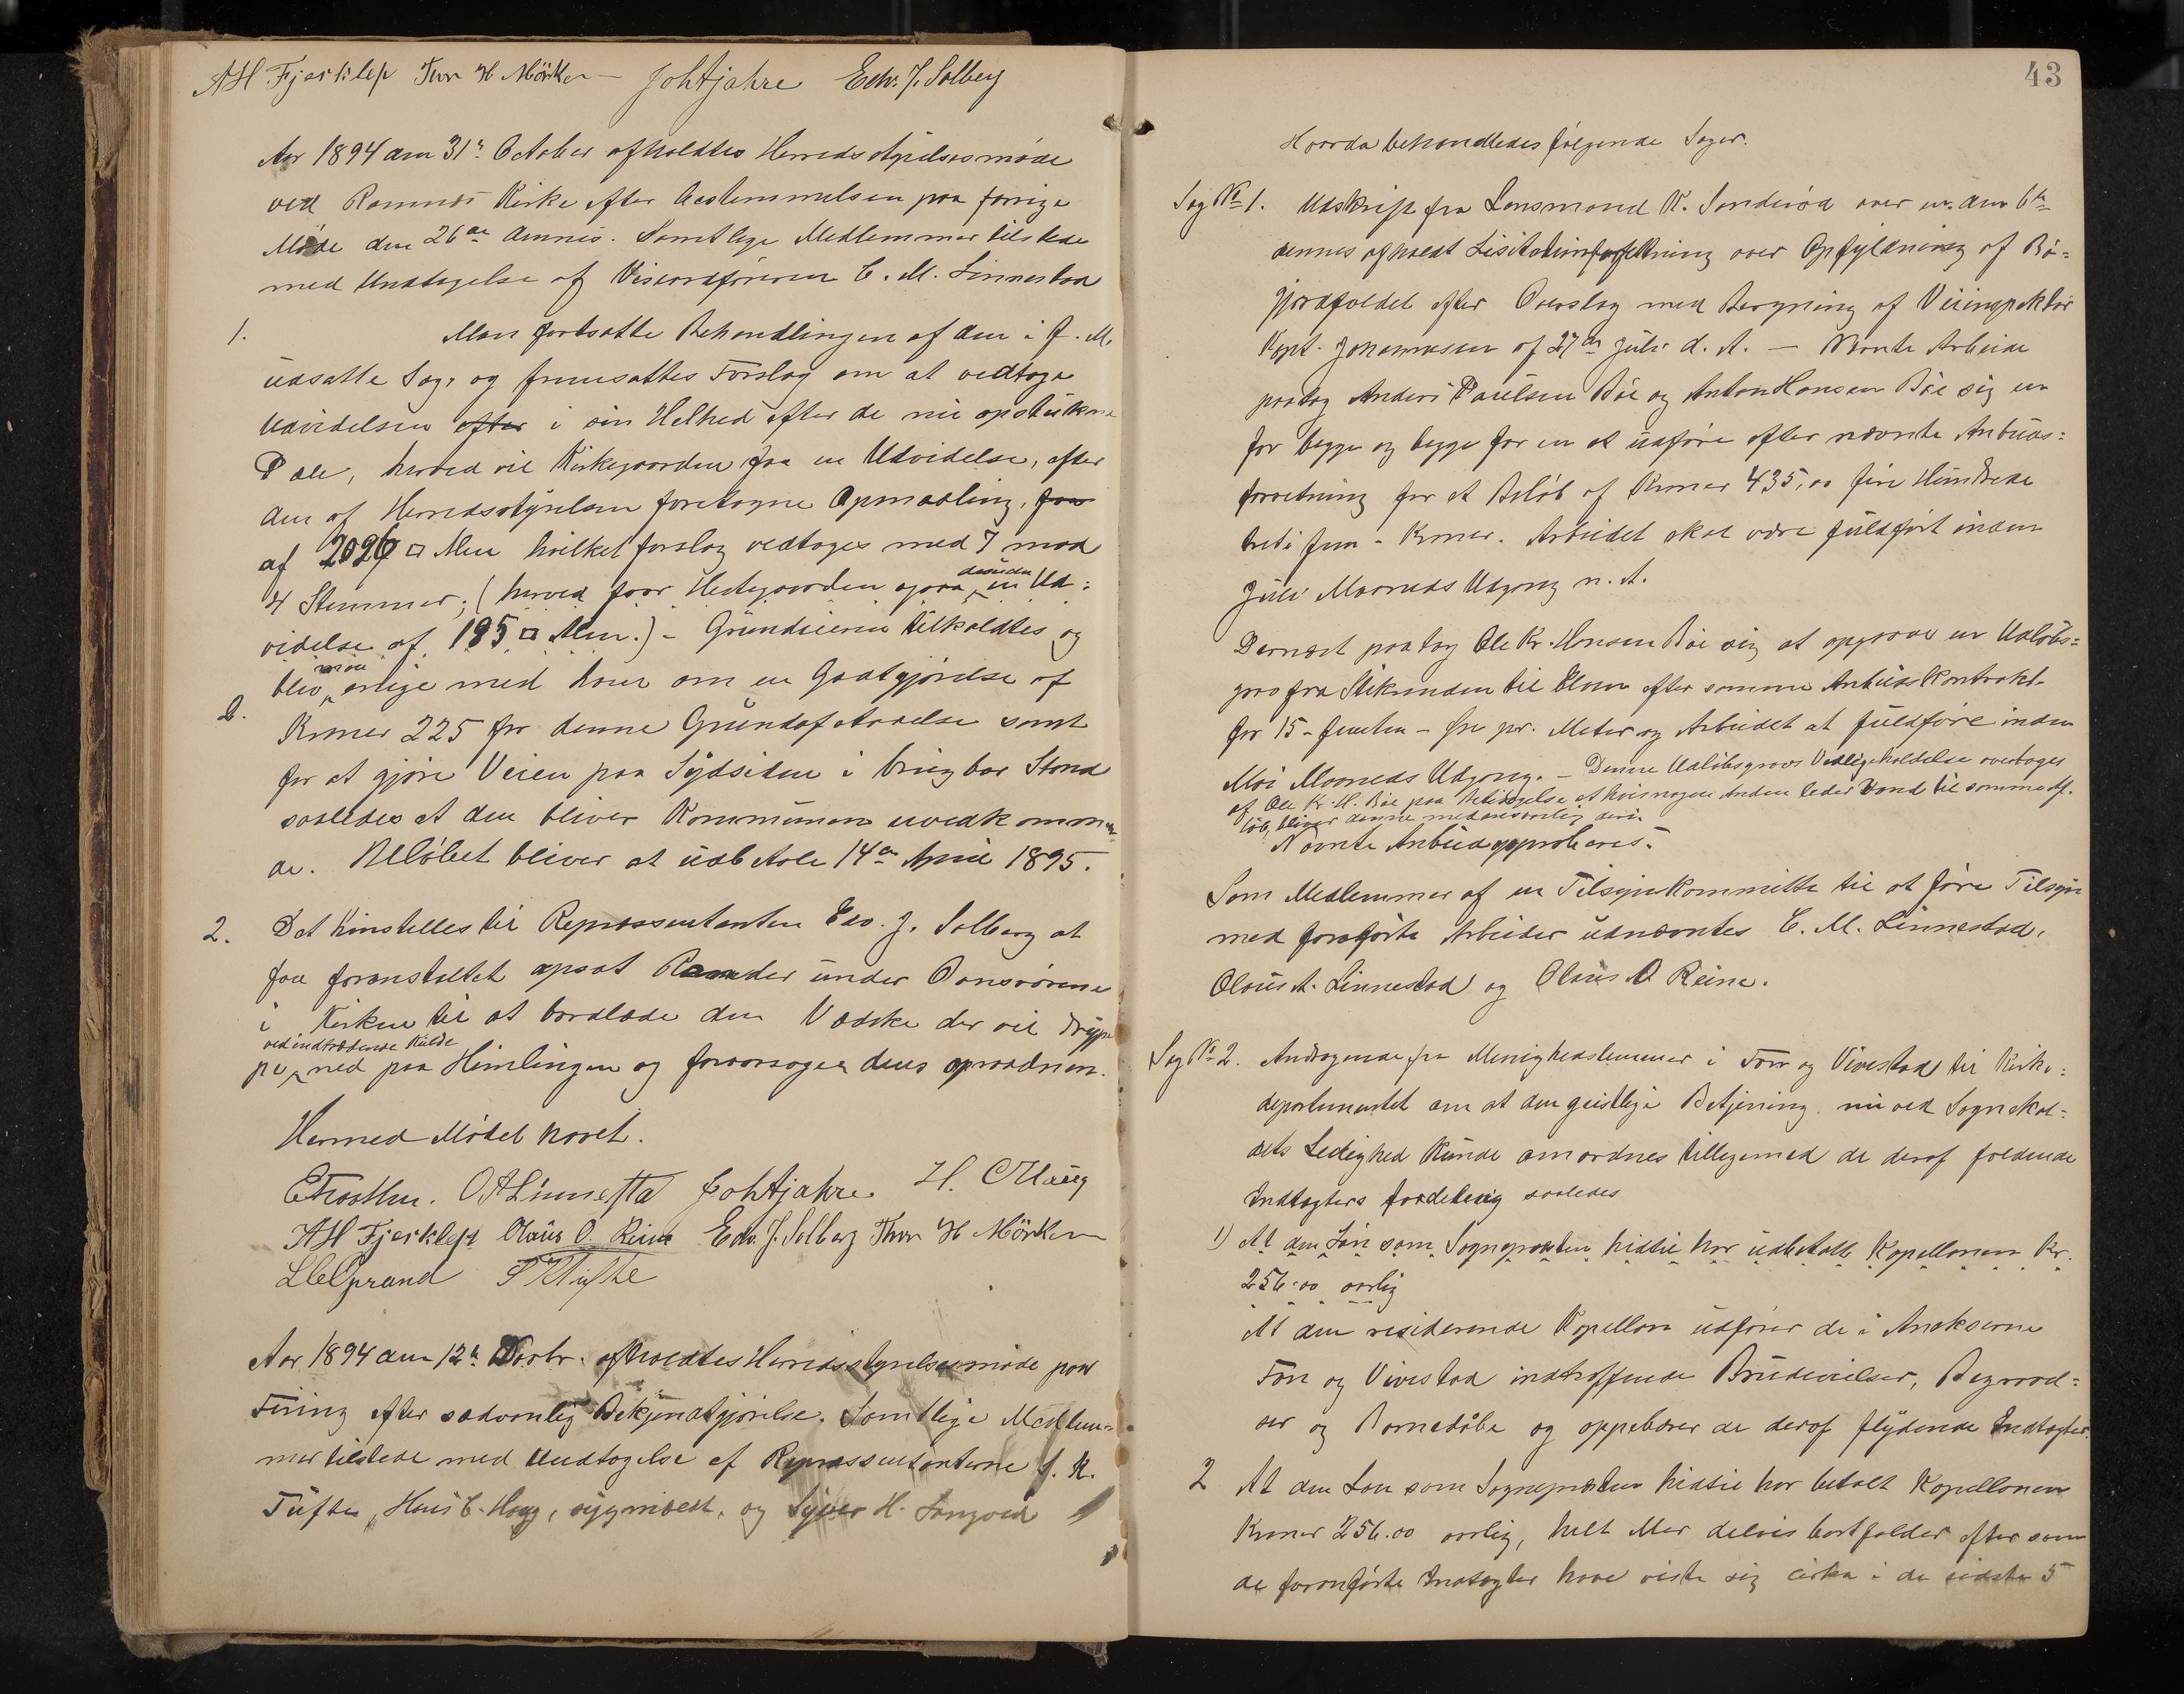 AH Fjærskep Thor H Mörken — Joh Hjahre Edv. J. Solberg
Aar 1894 den 31te October afholdtes Herredsstyrelsesmøde
ved Ramnæs Kirke efter Bestemmelsen paa forrige
Møde den 26de dennes. Samtlige Medlemmer tilstede
med Undtagelse af Viseordføreren C. M. Linnestad
1. Man fortsatte Behandlingen af den i F. M.
udsatte Sag, og fremsattes Forslag om at vedtage
Udvidelsen efter i sin Helhed efter de nu opstukne
Pæle, hvorved vil Kirkegaarden faa en Udvidelse, efter
den af Herredsstyrelsen foretagne Opmaaling, faa
af 2026 □ Alen hvilket forslag vedtoges med 7 mod
4 Stemmer; (herved faar Hestegaarden ogsaa desuden en Ud=
videlse af 195 □ Alen.) – Grundeieren tilkaldtes og
2. blev man enige med ham om en Godtgjørelse af
Kroner 225 for denne Grundafstaaelse samt
for at gjøre Veien paa Sydsiden i brugbar Stand
saaledes at den bliver Kommunen uvedkommen
de. Beløbet bliver at udbetale 14de April 1895.
2. Det henstilles til Repræssentanten Edv. J. Solberg at
faa foranstaltet opsat Render under Ovnsrørene
i Kirken til at bortlede den Vædske der vil dryp
pe ved indtrædende Kulde ned paa Himlingen og foraarsager dens opraadnen.
Hermed Mødet hævet.
O A Linnestad Joh Hjahre H. C Haug
AH Fjærskep Olaus O. Reine Edv. J. Solberg Thor H Mörken
Aar 1894 den 12te Novbr. afholdtes Herredsstyrelsesmøde paa
Firing efter sædvanlig Bekjendtgjørelse. Samtlige Medlem-
mer tilstede med Undtagelse af Repræssentanterne S. K.
Tufte, Hans C. Haug, sygmeldt, og Syver H. Langved
43
Hvorda behandledes følgende Sager.
Sag No 1. Udskrift fra Lensmand K. Sanderød over en den 6te
dennes afholdt Lisitationsforretning over Opfyldning af Bö=
gjordfoldet efter Overslag med Beregning af Veiinspektør
Kapt. Johannesen af 27de Juli d. A. — Nævnte Arbeide
paatog Anders Paulsen Bøe og Anton Hansen Bøe sig en
for begge og begge for en at udføre efter nævnte Anbuds=
forretning for et Beløb af Kroner 435,00 fire Hundrede
treti fem - Kroner. Arbeidet skal være fuldført inden
Juli Maaneds Udgang n. A.
Dernæst paatog Ole Kr. Hansen Bøe sig at opgrave en Udløbs=
grøv fra Stikrenden til Elven efter samme Anbudskontrakt
for 15 - femten - Øre pr. Meter og Arbeidet at fuldføre inden
Mai Maaneds Udgang. – Denne Udløbsgrøvs Vedligeholdelse overtages
af Ole Kr. H. Bøe paa Betingelse at hvis nogen Anden leder Vand til samme Af.
løb, bliver denne medansvarlig deri.
Nævnte Anbud approberes.
Som Medlemmer af en Tilsynskommitte til at føre Tilsyn
med foranførte Arbeider udnævntes C. M. Linnestad,
Olaus A. Linnestad og Olaus O Reine.
Sag No 2. Andragende fra Menighedslemmer i Fon og Vivestad til Kirke=
departementet om at den geistlige Betjening nu ved Sognekal=
dets Ledighed kunde omordnes tilligemed de deraf foldende
Indtægters fordeling saaledes
1) At den Løn som Sognepræsten hidtil har udbetalt Kapellanen Kr.
256.00 aarlig
At den residerende Kapellan udfører de i Anekserne
Fon og Vivestad indtræffende Brudevielser, Begravel=
ser og Barnedåbe og oppebærer de deraf flydende Indtægter.
2 At den Løn som Sognepræsten hidtil har betalt Kapellanen
Kroner 256.00 aarlig, helt eller delvis bortfalder eftersom
de foranførte Indtægter have viste sig cirka i de sidste 5